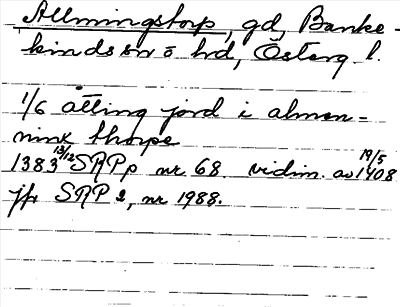 Allmingstorp, gd, Banke-
kinds sn o hd, Österg l.
1/6 atting jord i almen-
nink thorpe
1383 13/12 SRPp nr 68. vidim. av 19/5 1408
jfr SRP 2, nr 1988.